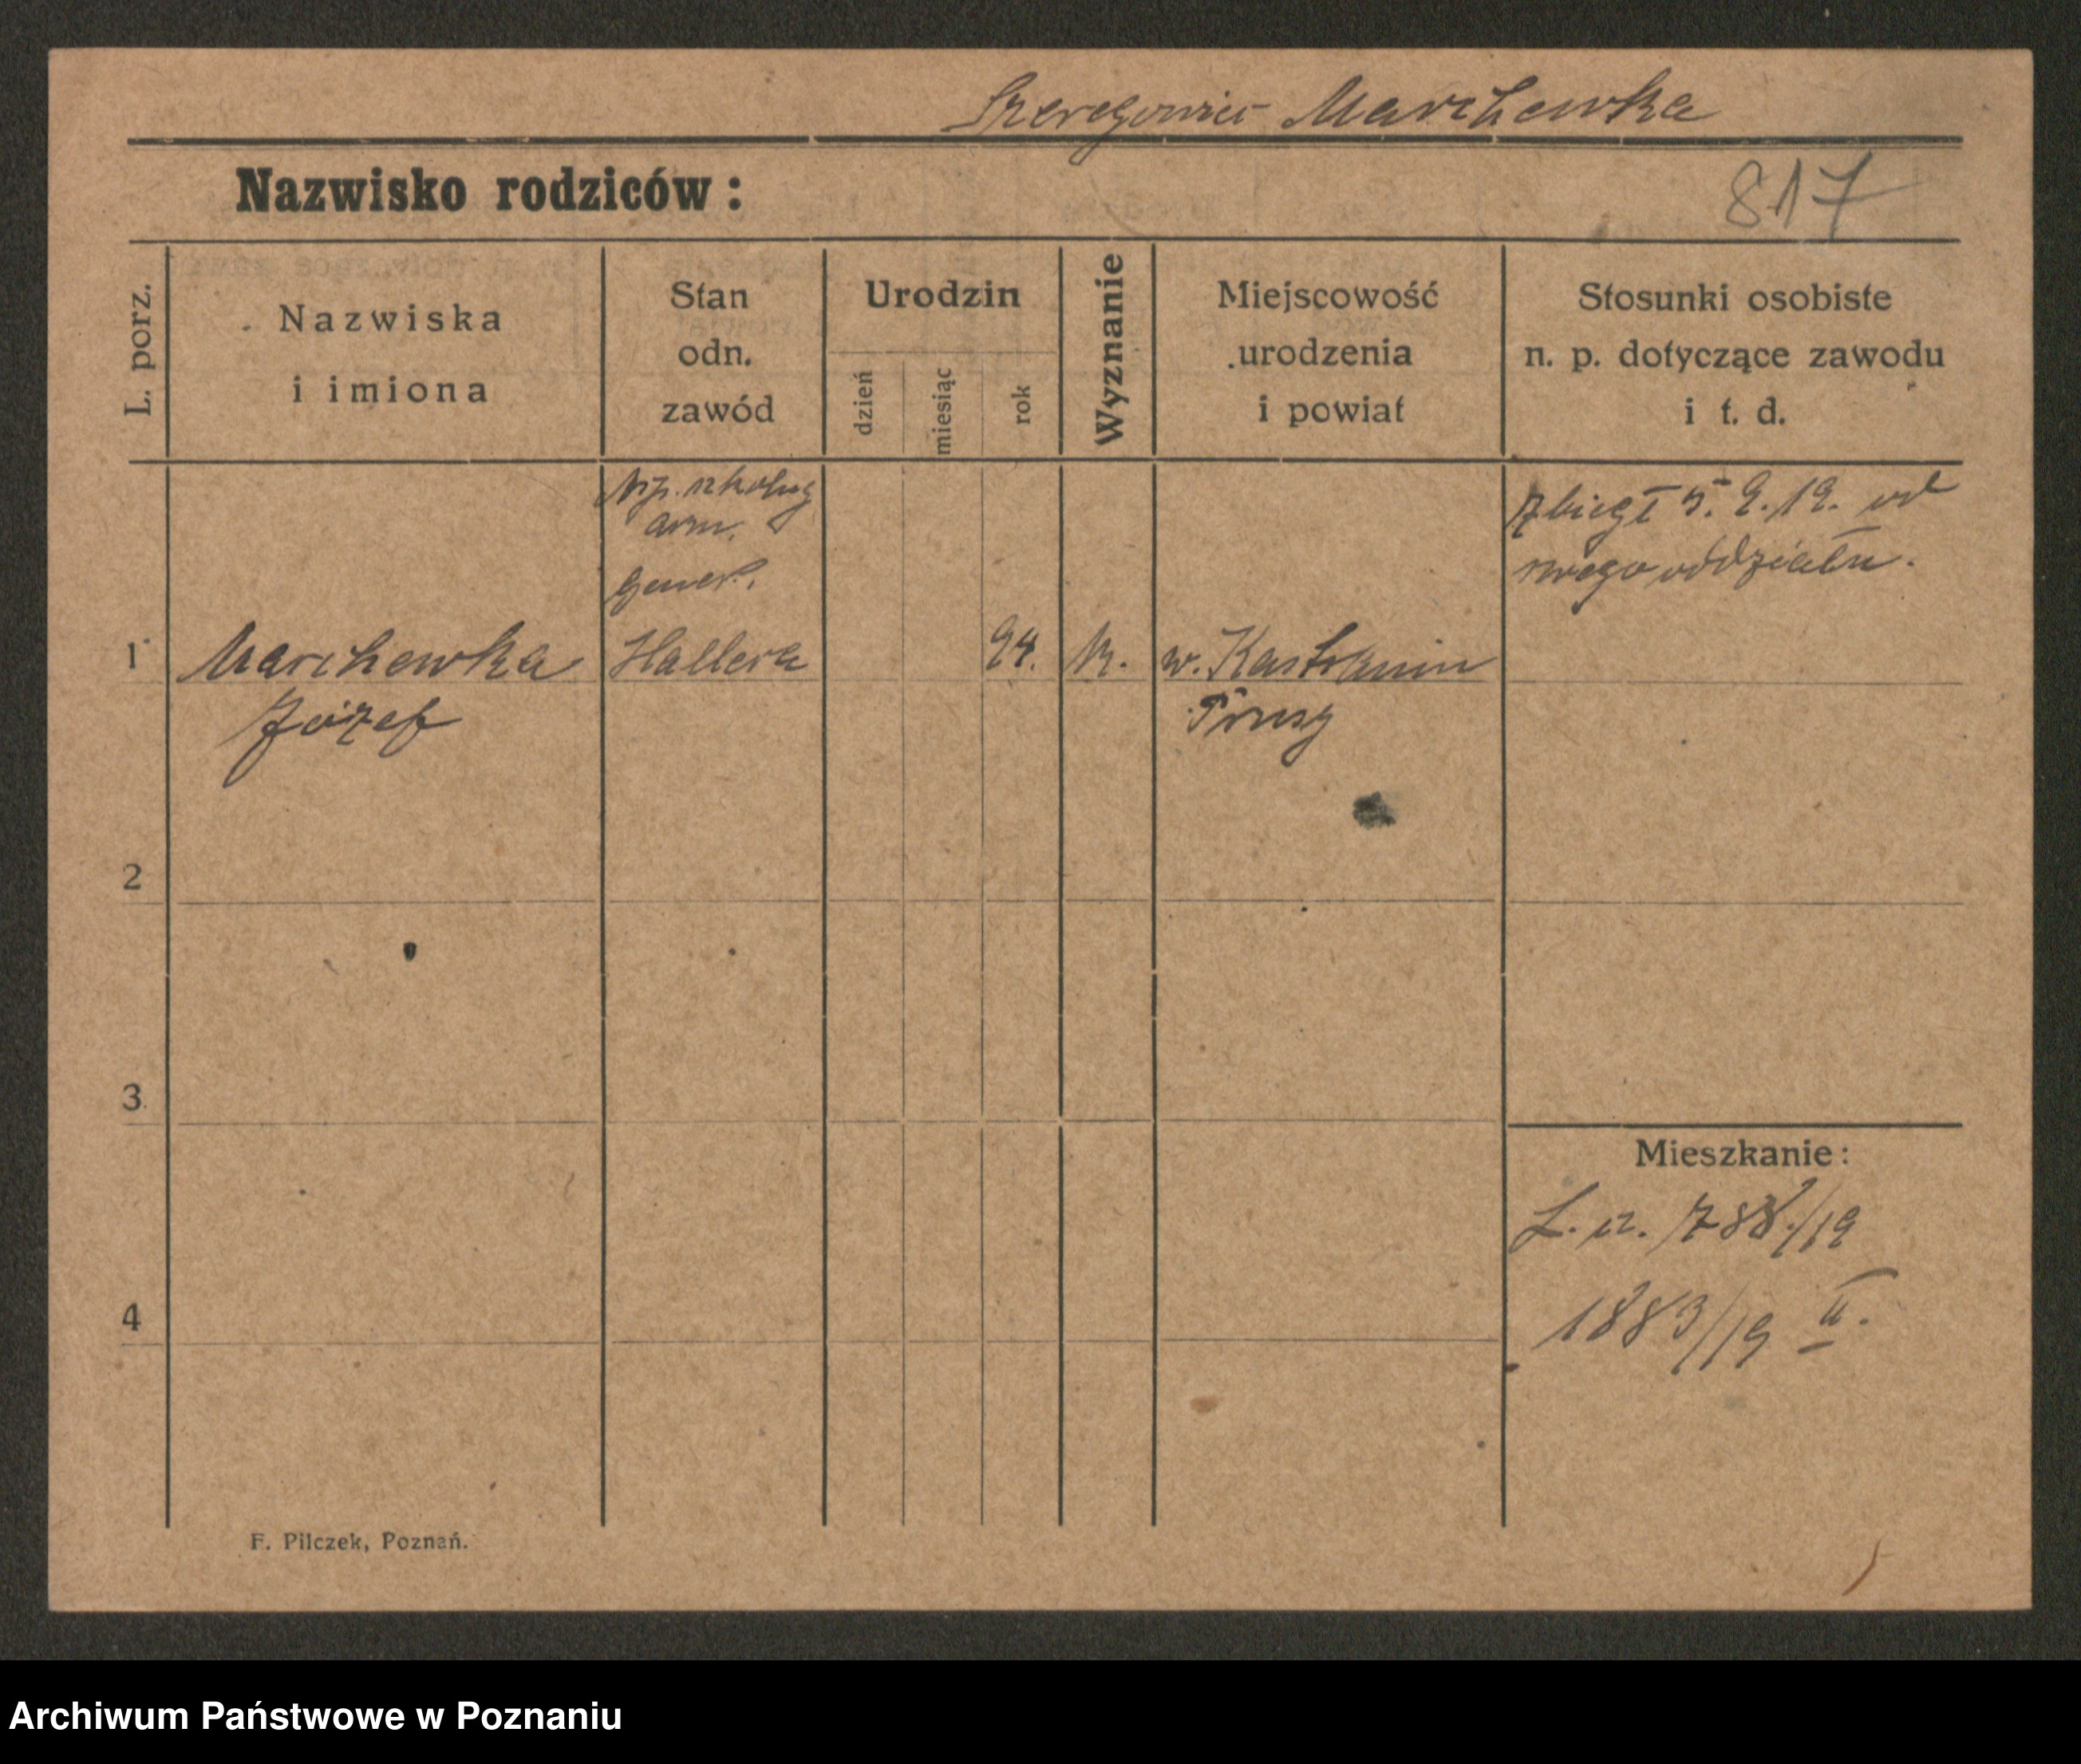 Szeregowiec Marchewka
Nazwisko rodziców:
817
L. porz.
Nazwiska
i imiona
Stan
odn.
zawód
Urodzin
dzień
miesiąc
rok
Wyznanie
Miejscowość
urodzenia
i powiat
Stosunki osobiste
n. p. dotyczące zawodu
i t. d.
arm.
gener.
Hallera
zbiegł 5.9.19. od
swego oddziału.
1
Marchewka
Józef
94.
w.
Prusy
2
3
4
Mieszkanie:
L. n. 788./19
1883/19 II.
F. Pilczek, Poznań.
Archiwum Państwowe w Poznaniu